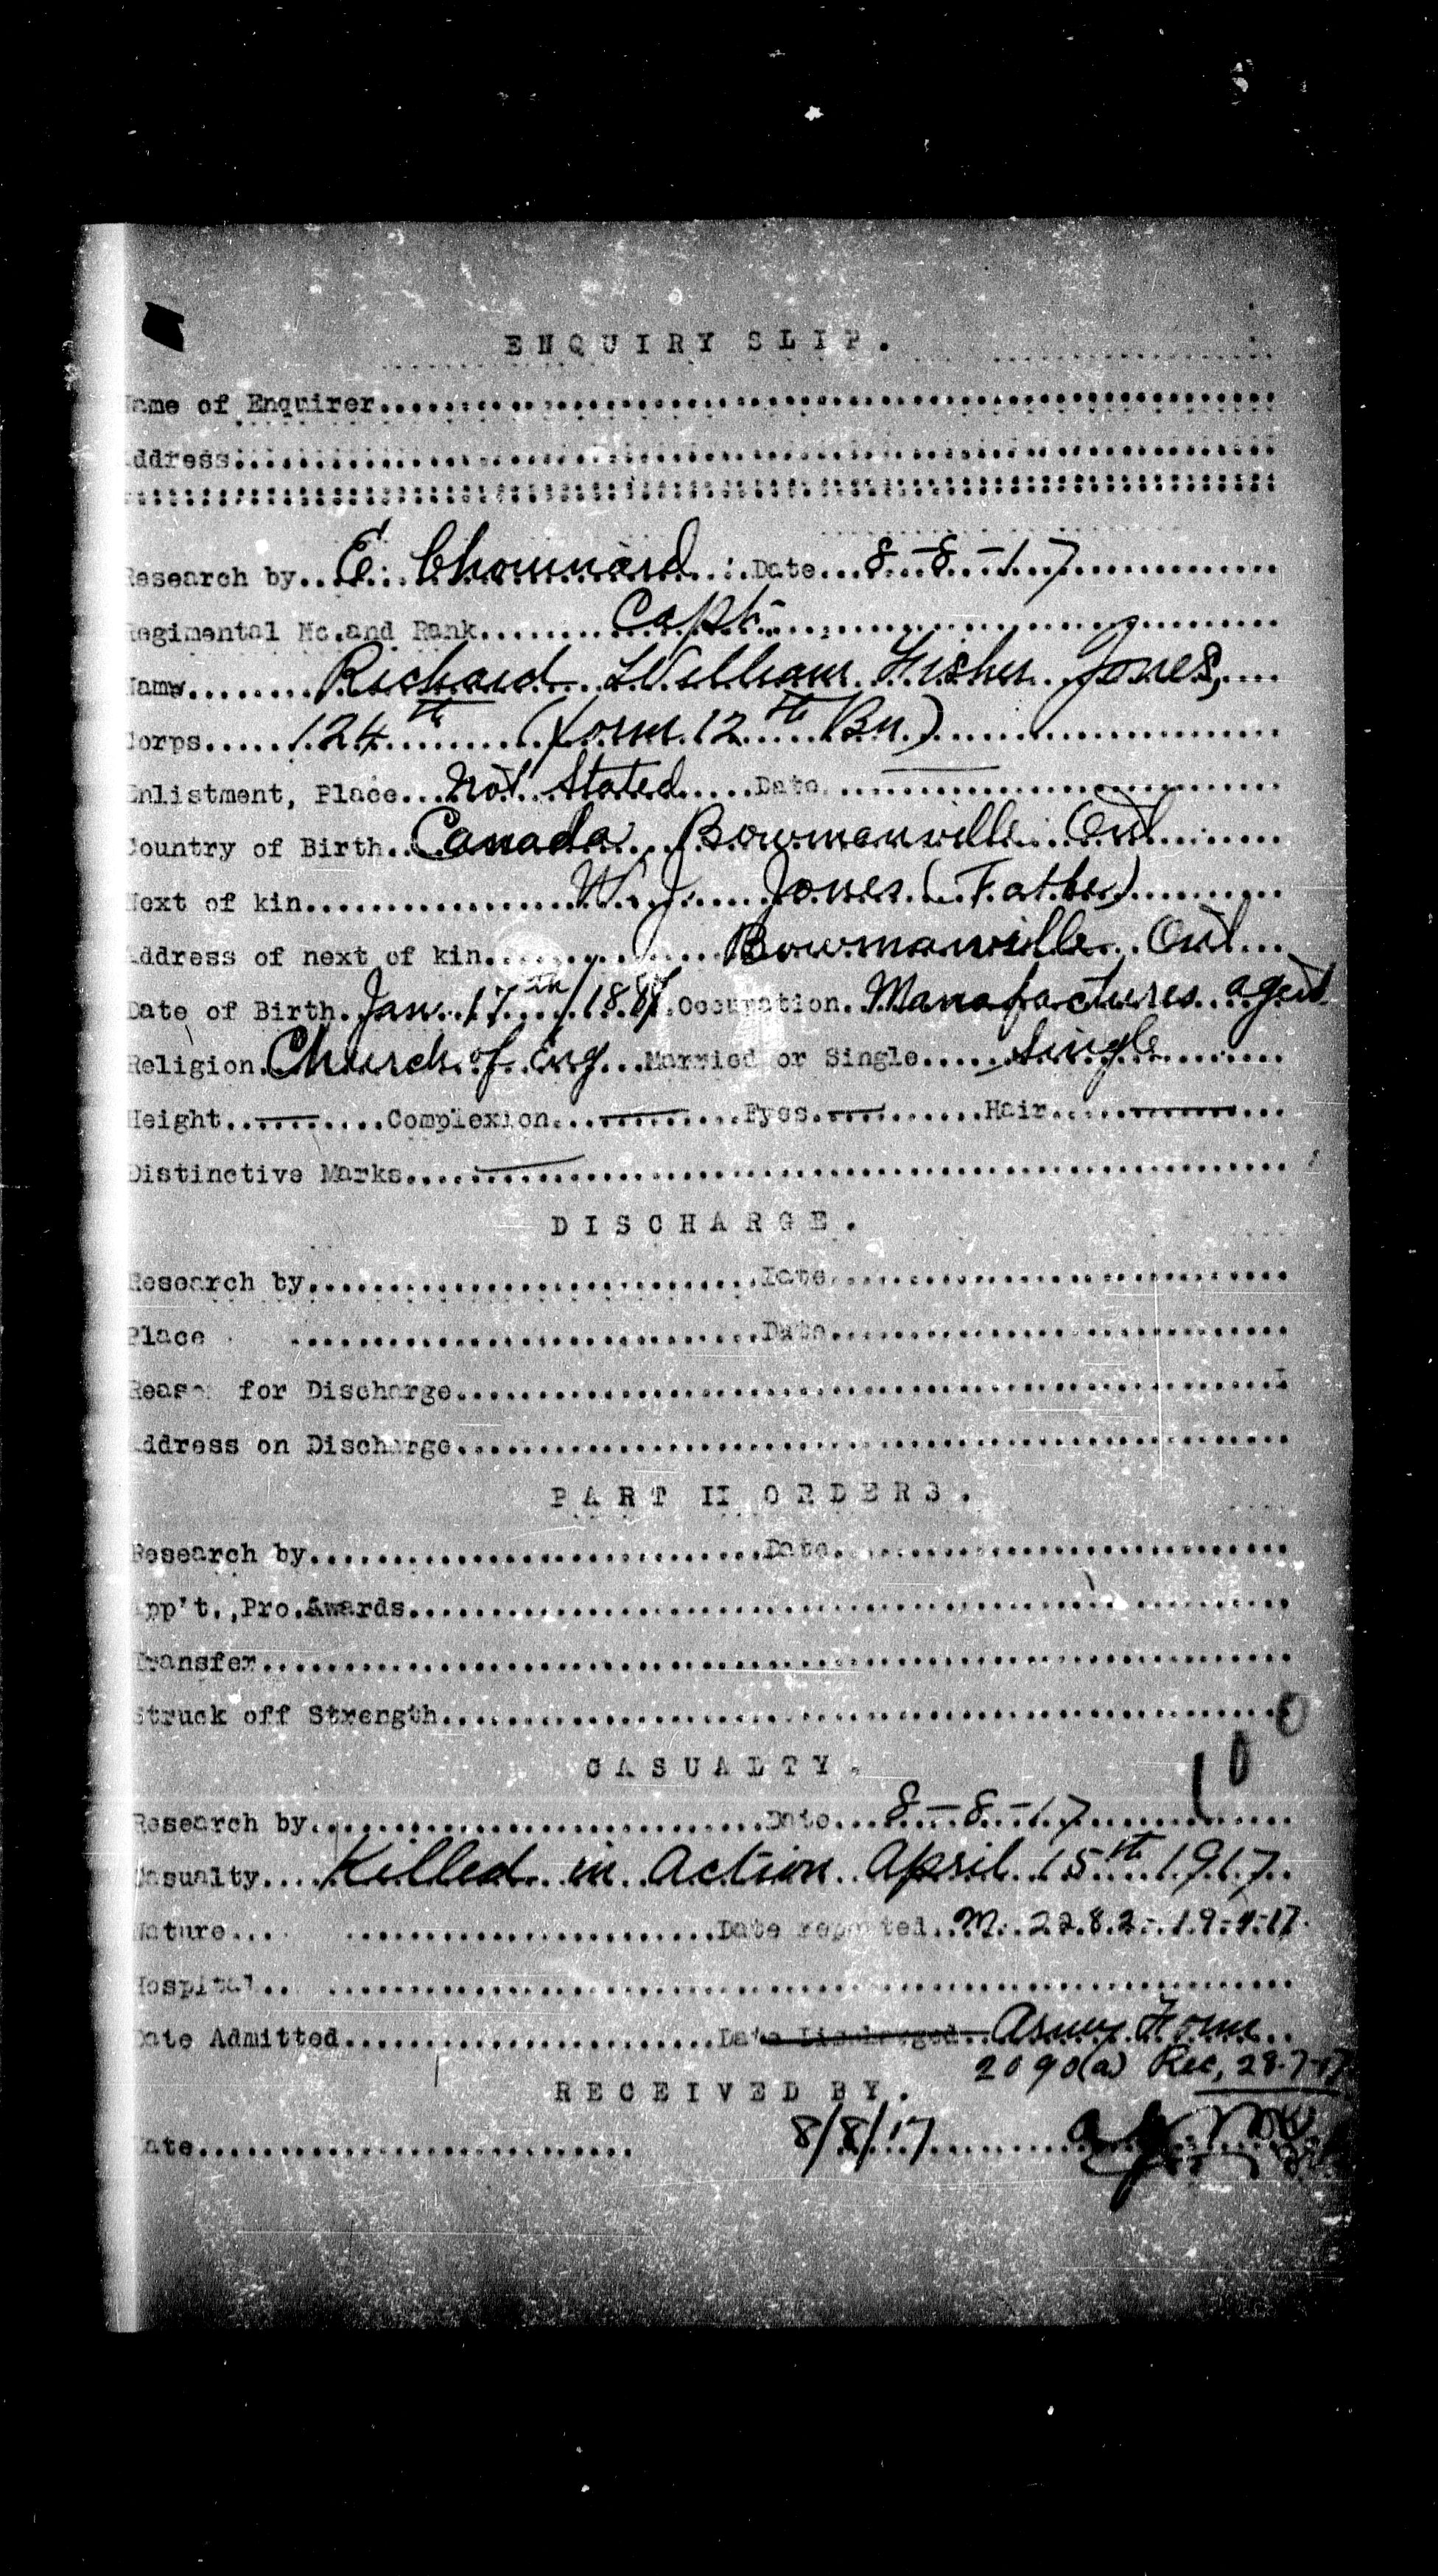 ENQUIRY SLIP.
Name of Enquirer
Address
Research by E. Chouinard Date 8-8-17
Regimental No. and Rank Capt.
Name Richard William Fisher Jones,
Corps 124th (form 12th Bn)
Enlistment, Place not Stated Date —
Country of Birth Canada Bowmanville Ont
Next of kin W. J. Jones (Father)
Address of next of kin Bowmanville Ont
Date of Birth Jan 17th/188 Occupation Manafactures agent
Religion Church of Eng Married or Single Single
Height — Complexion — Eyes — Hair —
Distinctive Marks —
DISCHARGE.
Research by Date
Place Date
Reason for Discharge
Address on Discharge
PART II ORDERS.
Research by Date
App't.,Pro.Awards
Transfer
Struck off Strength
CASUALTY.
Research by Date 8-8-17
Casualty Killed in Action April 15th 1917
Nature Date reported M. 2282-19-4-17
Hospital
Date Admitted Date Discharged Army Form
2090(a) Rec, 28-7-17
RECEIVED BY.
Date 8/8/17